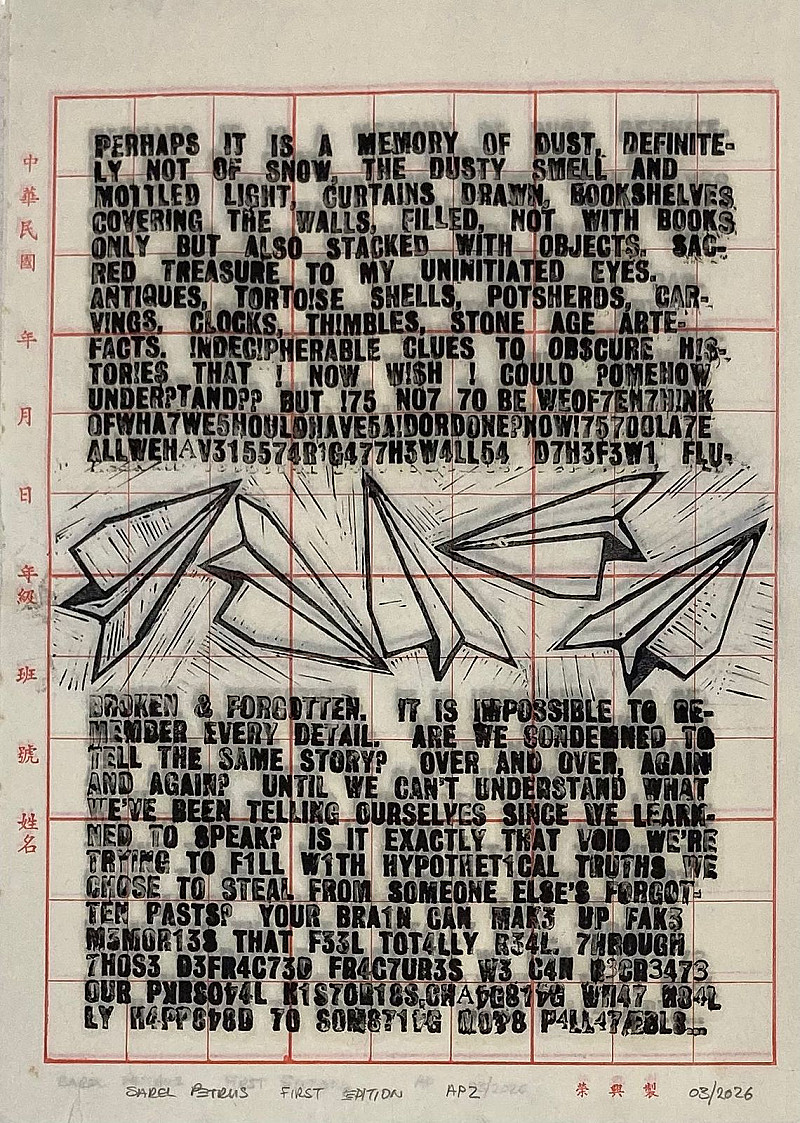 PERHAPS IT IS A MEMORY OF DUST, DEFINITE-
LY NOT OF SNOW, THE DUSTY SMELL AND
MOTTLED LIGHT, CURTAINS DRAWN, BOOKSHELVES
COVERING THE WALLS, FILLED, NOT WITH BOOKS
ONLY BUT ALSO STACKED WITH OBJECTS. SAC-
RED TREASURE TO MY UNINITIATED EYES.
ANTIQUES, TORTO!SE SHELLS, POTSHERDS, CAR-
VINGS, CLOCKS, TH!MBLES, STONE AGE ARTE-
FACTS. !NDEC!PHERABLE CLUES TO OB$CURE H!S-
TOR!ES THAT ! NOW W!$H ! COULD ?OMEHOW
UNDER?TAND?? BUT !75 NO7 70 BE WEOF7EN7H!NK
OFWHA7WE5HOULDHAVE5A!DORDONE?NOW!75700LA7E
ALLWEHAV315574R1G477H3W4LL54 D7H3F3W1 FLU-
BROKEN & FORGOTTEN. IT IS IMPOSSIBLE TO RE-
MEMBER EVERY DETAIL. ARE WE CONDEMNED TO
TELL THE SAME STORY? OVER AND OVER, AGAIN
AND AGAIN? UNTIL WE CAN'T UNDERSTAND WHAT
WE'VE BEEN TELLING OURSELVES SINCE WE LEARN-
NED TO SPEAK? IS IT EXACTLY THAT VOID WE'RE
TRYING TO F1LL W1TH HYPOTHET1CAL TRUTHS WE
CHOSE TO STEAL FROM SOMEONE ELSE'S FORGOT-
TEN PASTS? YOUR BRA1N CAN MAK3 UP FAK3
M3MOR13S THAT F33L TOT4LLY R34L. 7HROUGH
7HOS3 D3FR4C73D FR4C7UR3S W3 C4N R3CR3473
OUR
LY H4PP3 70
中華民國 年 月 日 年級 班 號 姓名
SAREL PETRUS FIRST EDITION APZ 榮興製 03/2026